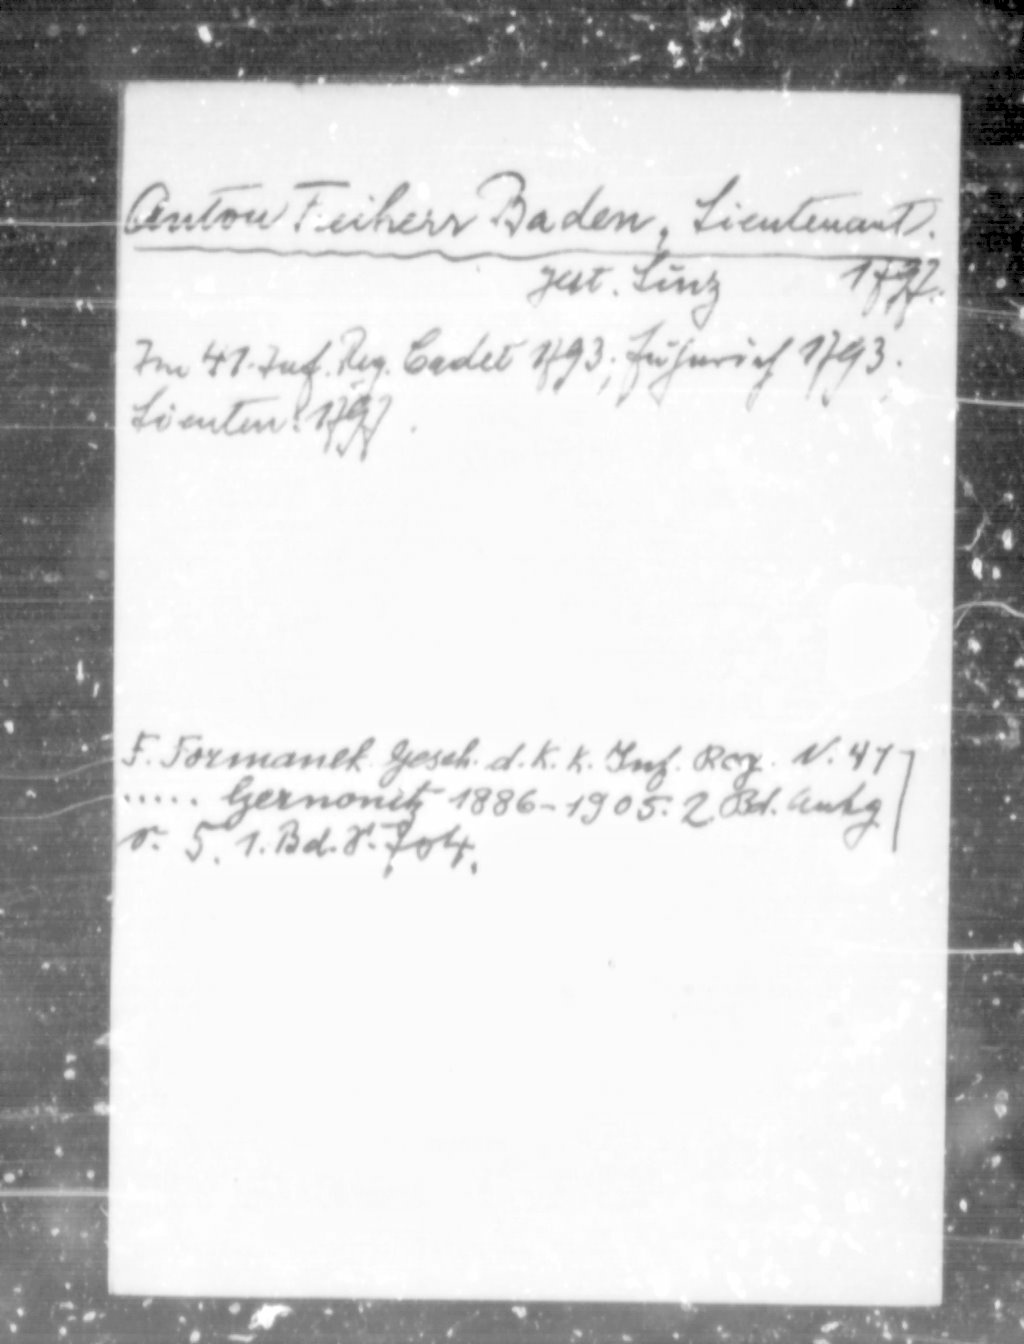 Anton Freiherr Baden, Lieutenant.
gest. Linz 1797.
Im 41. Inf. Reg. Cadet 1793; Fähnrich 1793.
Lieuten. 1797.
F. Formanek Gesch. d. K. K. Inf. Reg. N. 41
..... Czernowitz 1886-1905. 2 Bd.
S. 5. 1. Bd. S. 704.